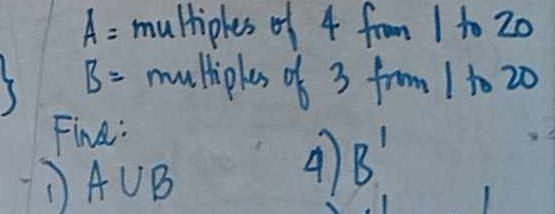 A = multiples of 4 from 1 to 20
} B = multiples of 3 from 1 to 20
Find:
1) A ∪ B
4) B'